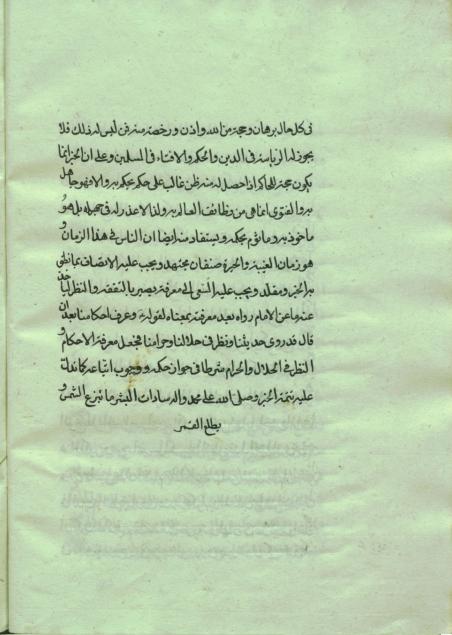 فى كل حال برهان وحجة من الله واذن ورخصة منه فمن ليس له ذلك فلا
يجوز له الرياسة فى الدين والحكم والافتاء فى المسلمين وعلى ان الخبر انما
يكون حجة للحاكم اذا حصل له منه ظن غالب على حكم يحكم به والا فهو جاهل
به والفتوى انما هى من وظائف العالم به ولذا لا عذر له فى جهله بل هو
ماخوذ به وماثوم بحكمه ويستفاد منه ايضا ان الناس فى هذا الزمان و
هو زمان الغيبة والحيرة صنفان مجتهد ويجب عليه الاتصاف بما نطق
به الخبر ومقلد ويجب عليه السعى الى معرفة بصير بالتفقه والنظر لياخذ
عنه ما عن الامام رواه بعد معرفته بمعناه لقوله ع وعرف احكامنا بعد ان
قال قد روى حديثنا ونظر فى حلالنا وحرامنا فجعل معرفة الاحكام و
النظر فى الحلال والحرام شرطا فى جواز حكمه ووجوب اتباعه كما تدل
عليه تتمة الخبر وصلى الله على محمد واله سادات البشر ما تبزغ الشمس و
يطلع القمر